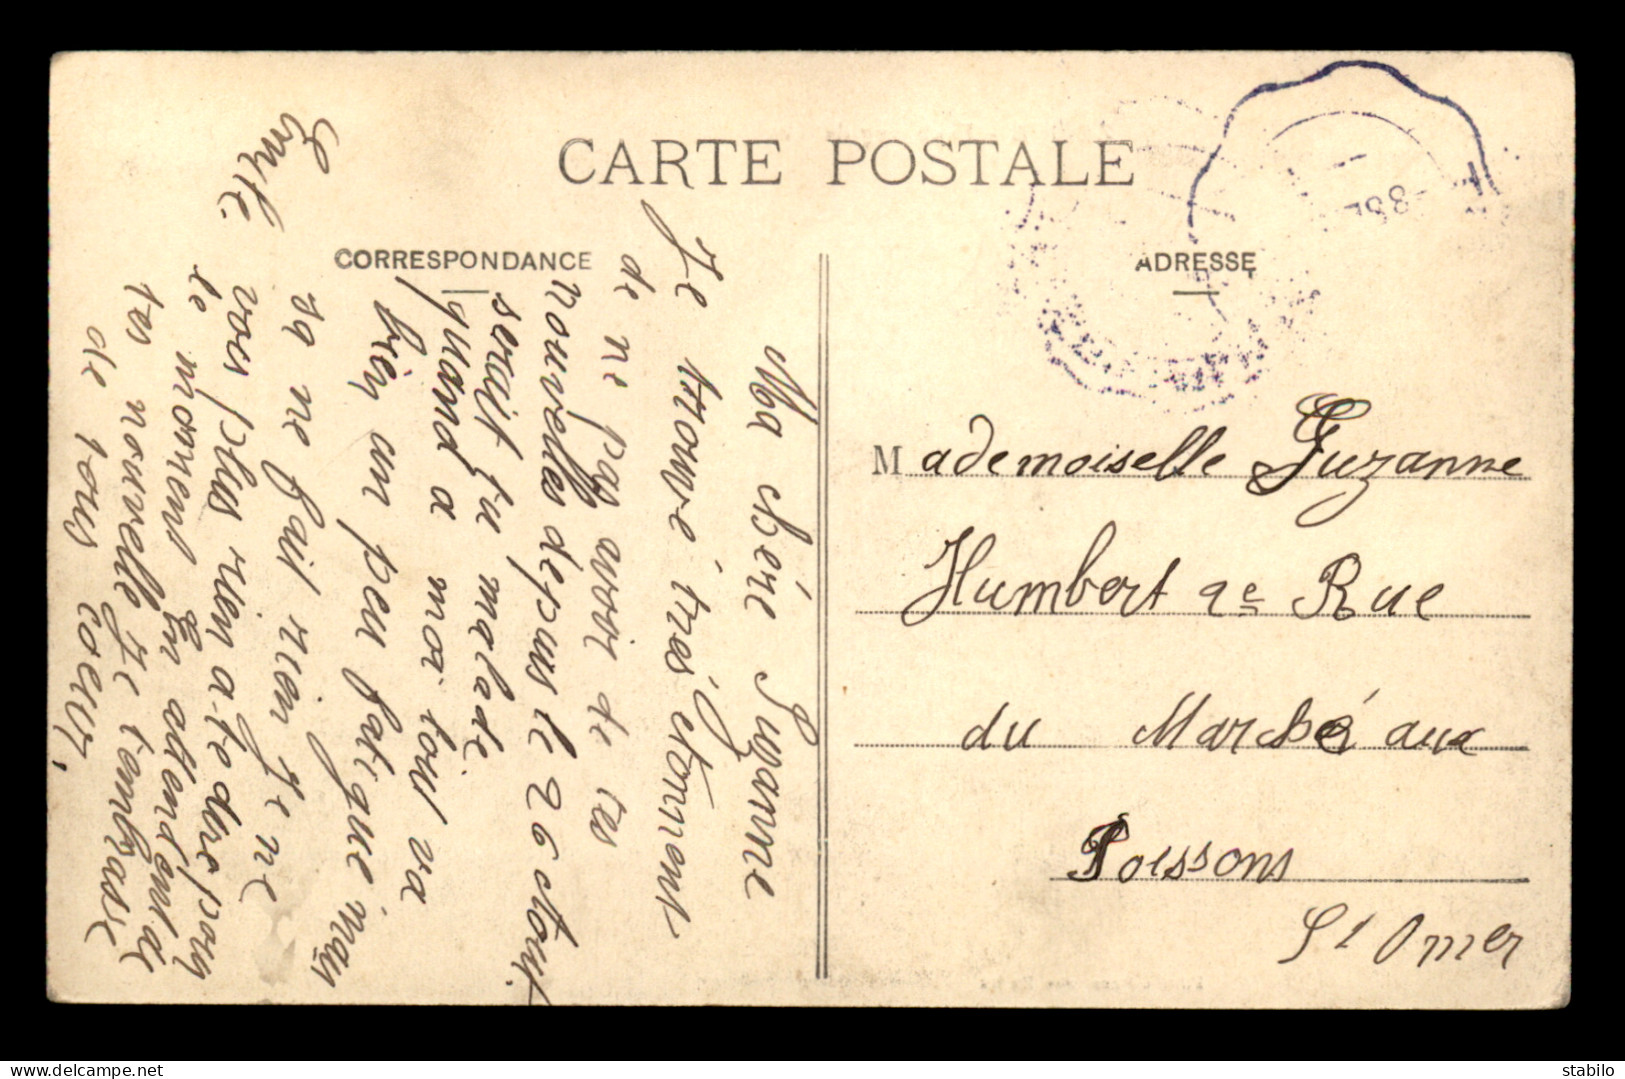 CARTE POSTALE
CORRESPONDANCE
ADRESSE
Ma chére Suzanne
Je trouvé trés étonnent
de ne pas avoir de tes
nouvelles depuis le 26
serait tu malade
quand a moi tout va
bien un peu fatigue mais
sa ne fait rien je ne
vois plus rien a te dire pour
le moment En attendent de
tes nouvelle Je t'embrasse
de tous coeur,
Emile.
Mademoiselle Suzanne
Humbert 9e Rue
du Marché aux
Poissons
St Omer
delcampe.net
stabilo